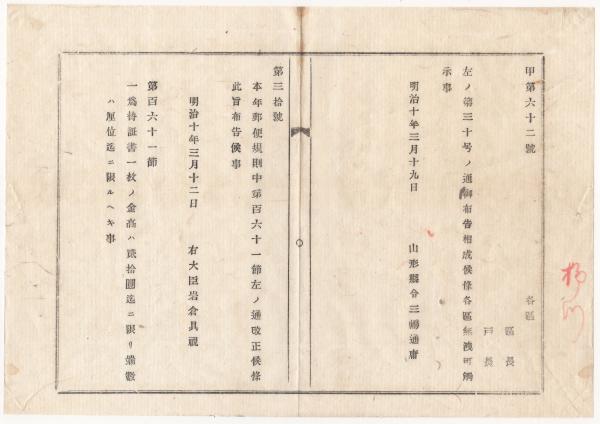 甲第六十二號
各區
區長
戸長
左ノ第三十号ノ通御布告相成候條各區無洩可觸
示事
明治十年三月十九日
山形縣令三嶋通庸
第三拾號
本年郵便規則中第百六十一節左ノ通改正候條
此旨布告候事
明治十年三月十二日
右大臣岩倉具視
第百六十一節
一爲替証書一枚ノ金高ハ貳拾圓迄ニ限リ端數
ハ厘位迄ニ限ルヘキ事